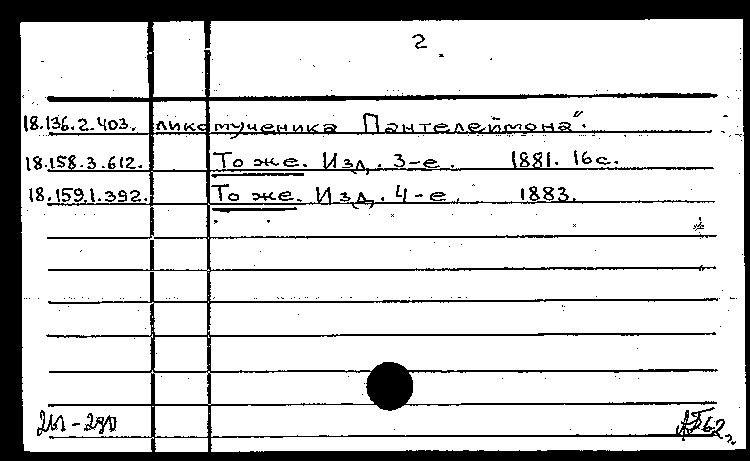 2
18.136.2.403. ликомученика Пантелеймона".
18.158.3.612. То же. Изд. 3-е. 1881. 16 с.
18.159.1.392. То же. Изд. 4-е. 1883.